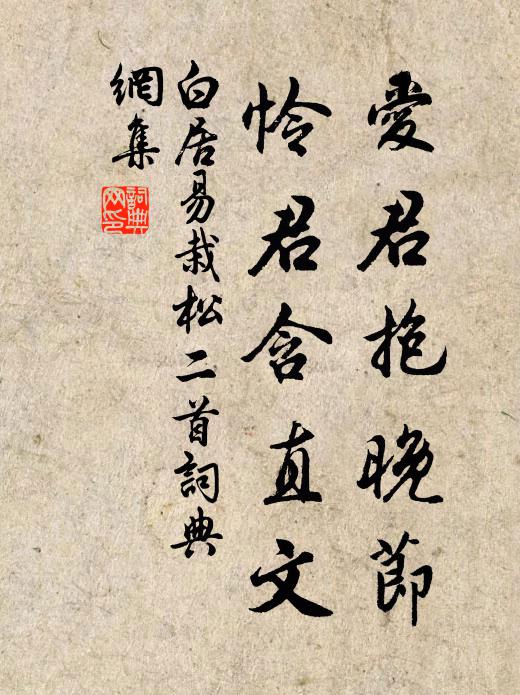 愛君抱晚節
怜君含直文
白居易栽松二首詞典
網集
詞典
网印